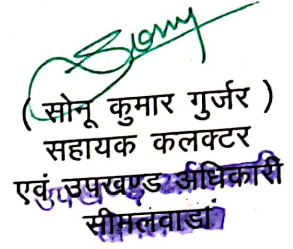 ( सोनू कुमार गुर्जर )
सहायक कलक्टर
एवं उपखण्ड अधिकारी
सीमलवाडा